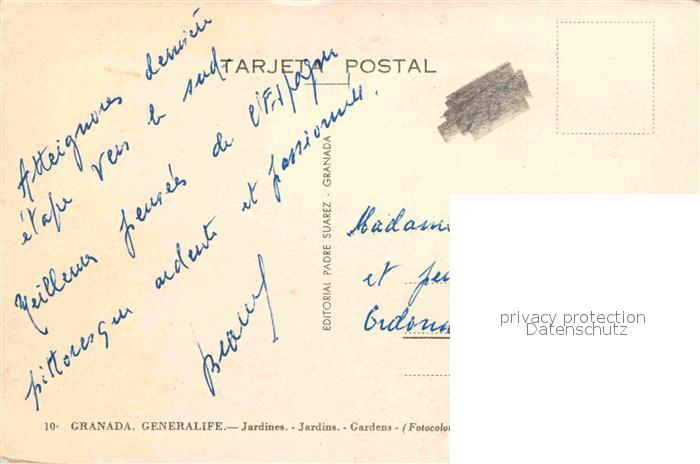 TARJETA POSTAL
Atteignons dernière
étape vers le sud.
Meilleures pensées de l'Espagne
pittoresque ardente et passionnée.
EDITORIAL PADRE SUAREZ - GRANADA
Madame
et
privacy protection
Datenschutz
10- GRANADA. GENERALIFE.— Jardines. - Jardins. - Gardens - (Fotocolor